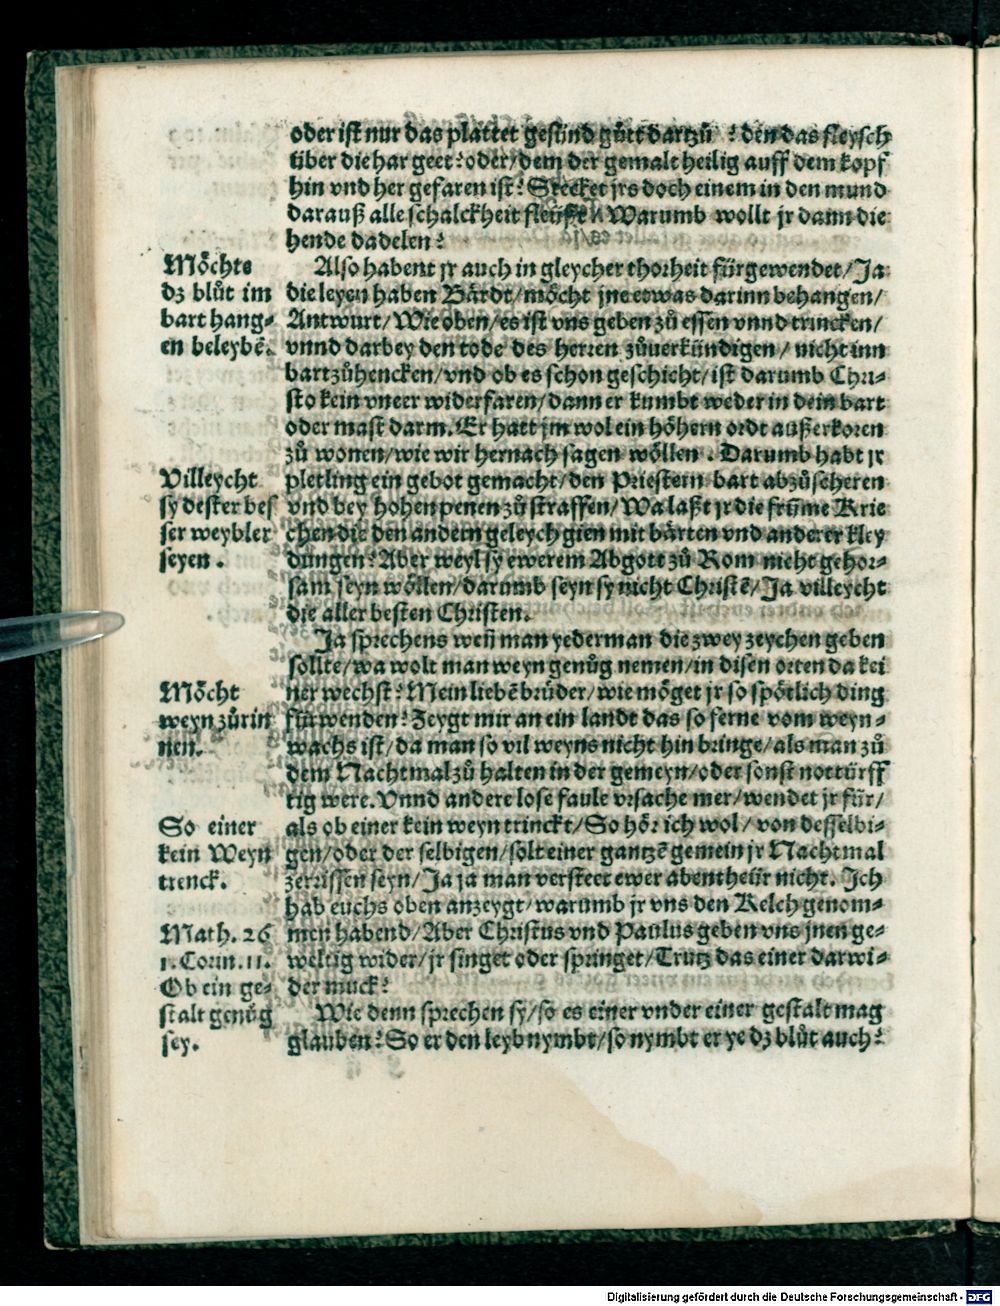 oder ist nur das plattet gesünd gůtt dartzů ? den das fleysch
über die har geet? oder/dem der gemalt heilig auff dem kopf
hin vnd her gefaren ist? Stecket jrs doch einem in den mund
darauß alle schalckheit fleüsst/ Warumb wollt jr dann die
hende dadelen?
Möchte
dz blůt im
bart hang-
en beleybē.
Also habent jr auch in gleycher thorheit fürgewendet/Ja
die leyen haben Bärdt/möcht jne etwas darinn behangen/
Antwurt/Wie oben/es ist vns geben zů essen vnnd trincken/
vnnd darbey den tode des herren zůuerkündigen/ nicht inn
bart zůhencken/vnd ob es schon geschicht/ist darumb Chri-
sto kein vneer widerfaren/dann er kumbt weder in dein bart
oder mast darm. Er hatt jm wol ein höhern ordt außerkoren
zů wonen/wie wir hernach sagen wöllen . Darumb habt jr
Villeycht
sy dester bes
ser weybler
seyen .
pletling ein gebot gemacht/den Priestern bart abzůscheren
vnd bey hohen penen zů straffen/Wa laßt jr die frūme Krie
chen die den andern geleych gien mit bärten vnd anderer kley
dungen? Aber weyl sy ewerem Abgott zů Rom nicht gehor-
sam seyn wöllen/darumb seyn sy nicht Christē/Ja villeycht
die aller besten Christen.
Ja sprechens weñ man yederman die zwey zeychen geben
sollte/wa wolt man weyn genůg nemen/in disen orten da kei
Möcht
weyn zůrin
nen.
ner wechst? Mein liebē brüder/wie möget jr so spötlich ding
fürwenden? Zeygt mir an ein landt das so ferne vom weyn-
wachs ist/da man so vil weyns nicht hin bringe/als man zů
dem Nachtmal zů halten in der gemeyn/oder sonst nottürff
tig were. Vnnd andere lose faule vrsache mer/wendet jr für/
So einer
kein Weyn
trenck.
als ob einer kein weyn trinckt/So hör ich wol/ von desselbi-
gen/oder der selbigen/solt einer gantzē gemein jr Nachtmal
zerrissen seyn/Ja ja man versteet ewer abentheür nicht. Ich
hab euchs oben anzeygt/warumb jr vns den Kelch genom-
Math. 26
1. Corin. 11.
Ob ein ge-
stalt genůg
sey.
men habend/Aber Christus vnd Paulus geben vns jnen ge-
weltig wider/jr singet oder springet/Trutz das einer darwi-
der muck?
Wie denn sprechen sy/so es einer vnder einer gestalt mag
glauben? So er den leyb nymbt/so nymbt er ye dz blůt auch?
Digitalisierung gefördert durch die Deutsche Forschungsgemeinschaft - DFG